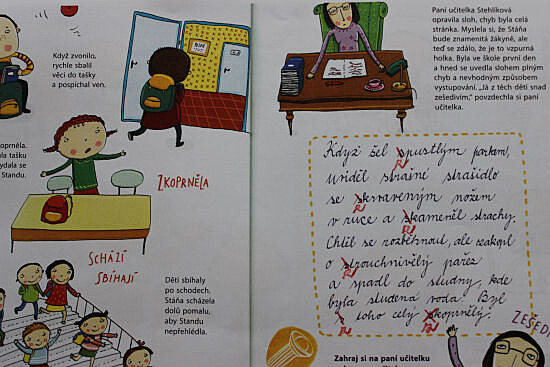 Když zvonilo,
rychle sbalil
věci do tašky
a pospíchal ven.
oprněla.
la tašku
ydala se
Standu.
ZKOPRNĚLA
SCHÁZÍ
SBÍHAJÍ
Děti sbíhaly
po schodech.
Stáňa scházela
dolů pomalu,
aby Standu
nepřehlédla.
Paní učitelka Stehlíková
opravila sloh, chyb byla celá
stránka. Myslela si, že Stáňa
bude znamenitá žákyně, ale
teď se zdálo, že je to vzpurná
holka. Byla ve škole první den
a hned se uvedla slohem plným
chyb a nevhodným způsobem
vystupování. „Já z těch dětí snad
zešedivím,“ povzdechla si paní
učitelka.
Když šel spustlým parkem,
uviděl strašné strašidlo
se skrvaveným nožem
v ruce a skameněl strachy.
Chtěl se rozběhnout, ale zakopl
o strouchnivělý pařez
a spadl do studny, kde
byla studená voda. Byl
toho celý skoprnělý.
ZEŠEDI
Zahraj si na paní učitelku